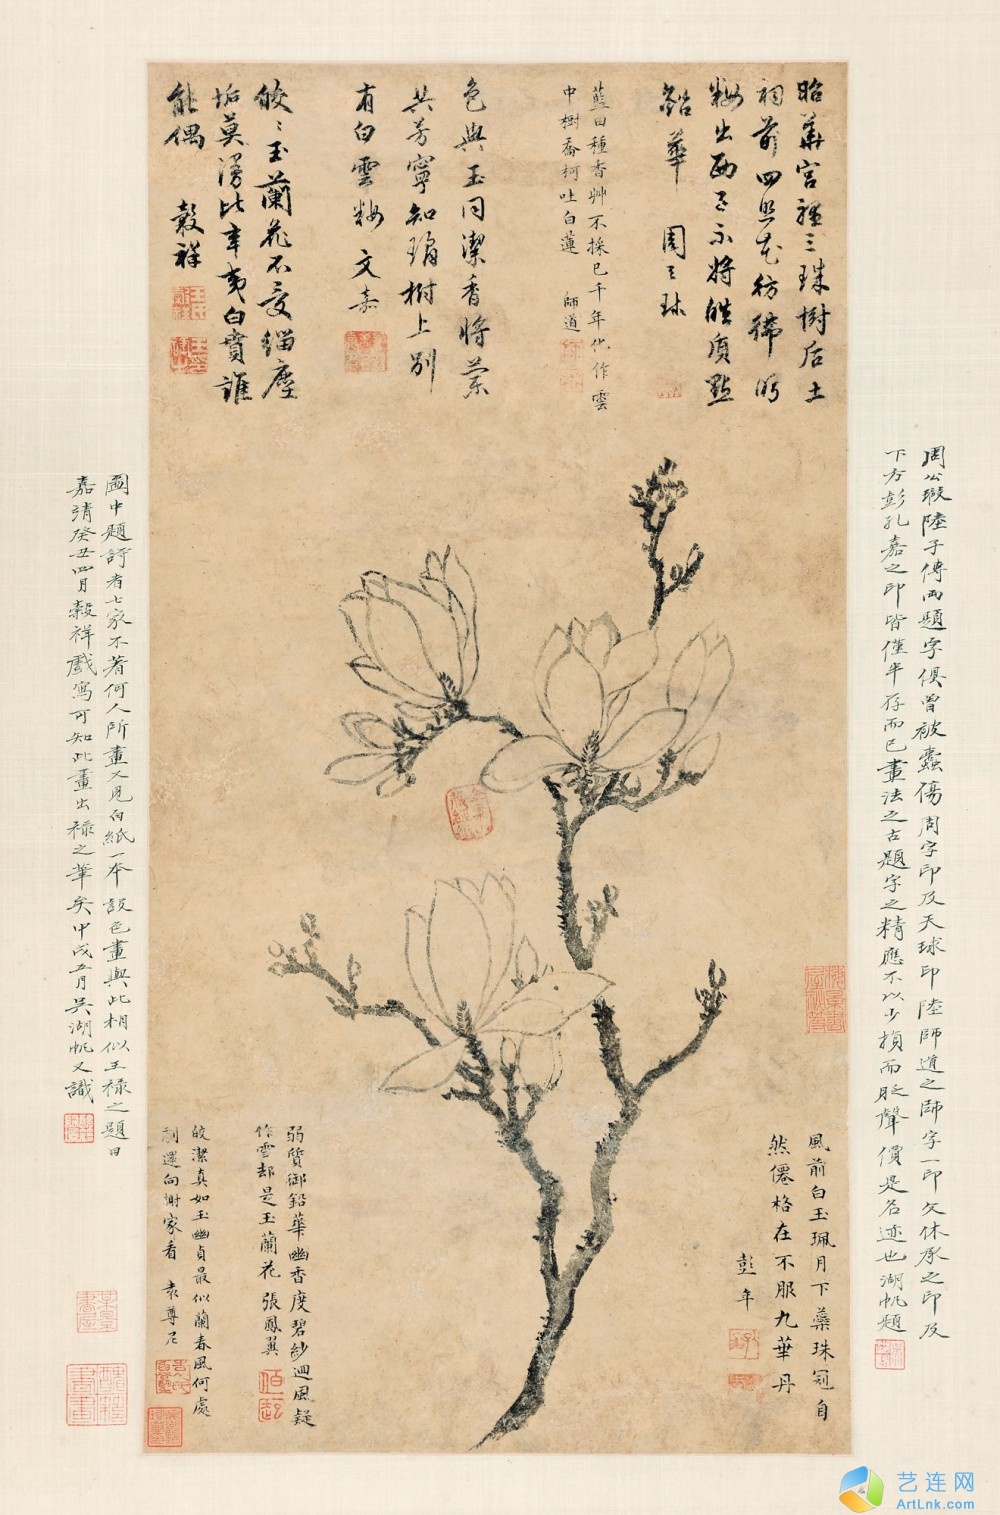 昭華宮裡三珠樹后土
祠前四照花彷彿
粉出而不將皓質點
鉛華　周天球
藍田種香艸不採已千年化作雲
中樹喬柯吐白蓮　師道
色與玉同潔香將蘭
共芳寧知瑤樹上別
有白雲粉　文嘉
皎皎玉蘭花不受緇塵
垢莫漫比辛夷白賁誰
能偶　穀祥
風前白玉珮月下蘂珠冠自
然僊格在不服九華丹
彭年
弱質御鉛華幽香度碧紗迴風疑
作雪却是玉蘭花　張鳳翼
皎潔真如玉幽貞最似蘭春風何處
別還向謝家看　袁尊尼
周公瑕陸子傳兩題字俱曾被蠹傷周字印及天球印陸師道之師字一印文休承之印及
下方彭孔嘉之印皆僅半存而已畫法之古題字之精應不以少損而貶聲價是名迹也湖帆題
圖中題詩者七家不著何人所畫又見白紙一本設色畫與此相似王祿之題曰
嘉靖癸丑四月穀祥戲寫可知此畫出祿之筆矣甲戌五月吳湖帆又識
梅景書屋秘笈
艺连网
ArtLnk.com